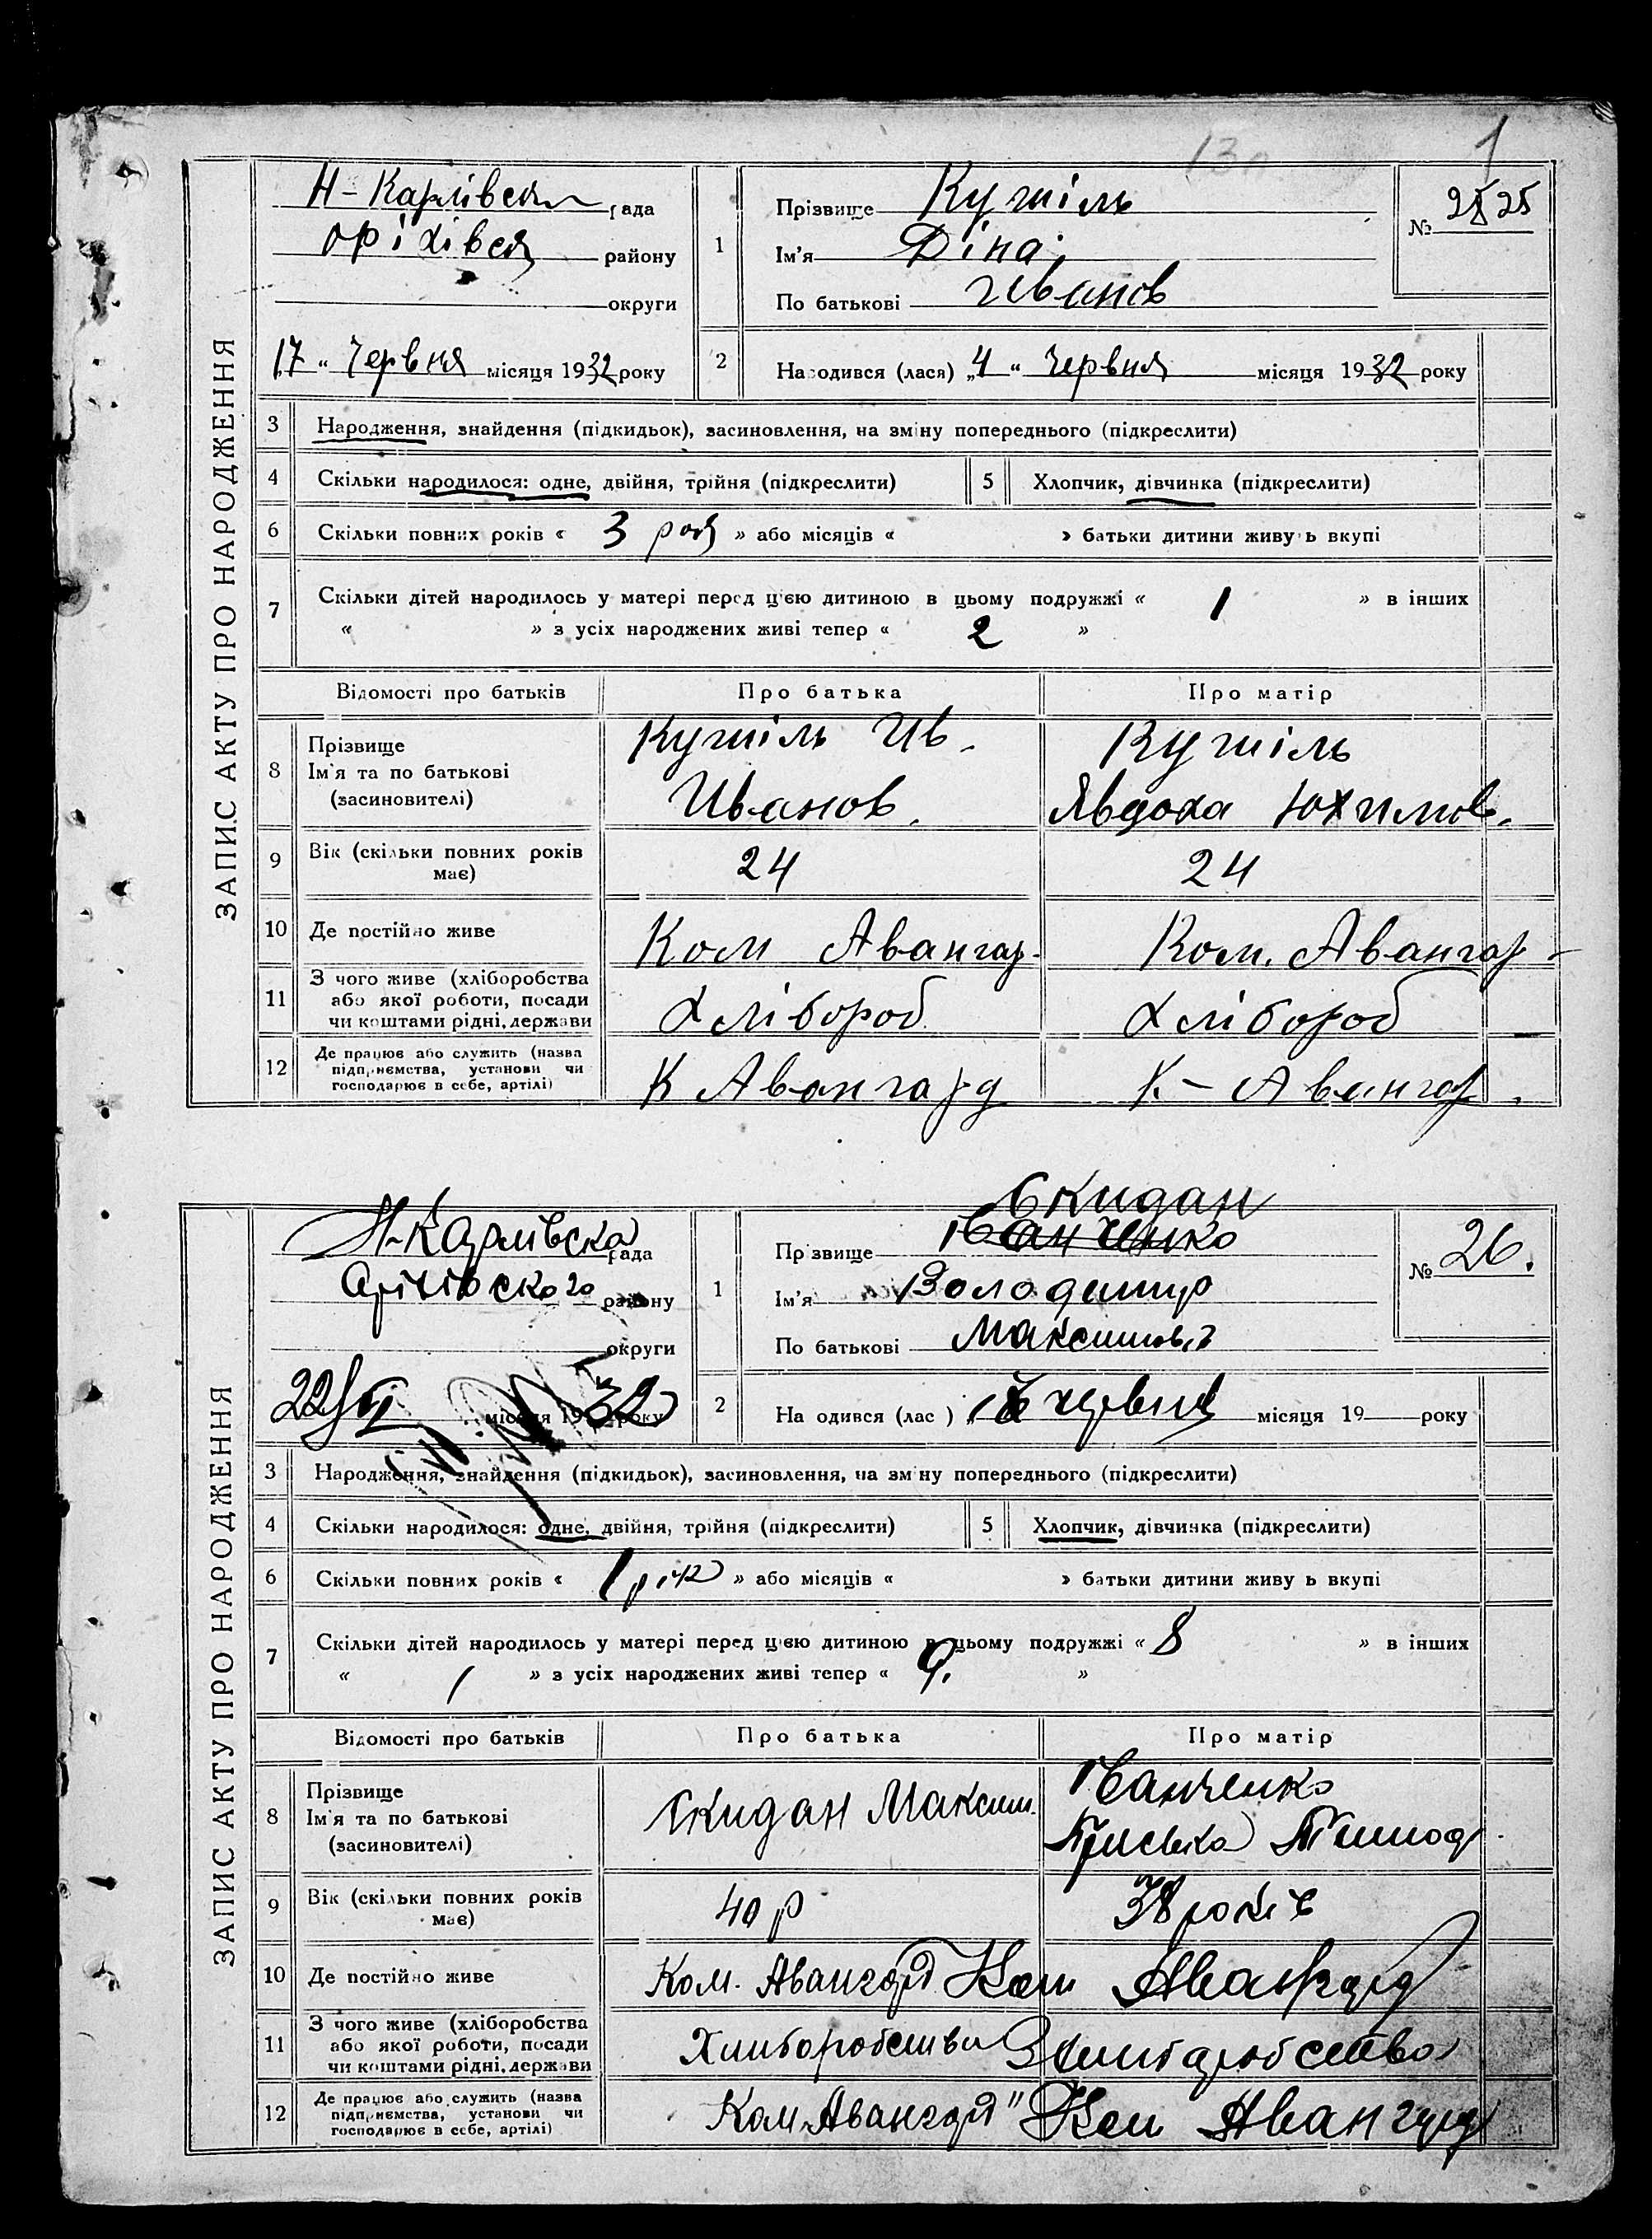 1
ЗАПИС АКТУ ПРО НАРОДЖЕННЯ
Н-Карлівська рада
Оріхівськ району
округи
17 " Червня місяця 1932 року
1
Прізвище Кутіль
Ім'я Діна
По батькові Иванов
№ 25
2 Народився (лася) „4 " Червня місяця 1932 року
3 Народження, знайдення (підкидьок), засиновлення, на зміну попереднього (підкреслити)
4 Скільки народилося: одне, двійня, трійня (підкреслити) 5 Хлопчик, дівчинка (підкреслити)
6 Скільки повних років « 3 рок » або місяців « » батьки дитини живуть вкупі
7 Скільки дітей народилось у матері перед цією дитиною в цьому подружжі « 1 » в інших
« » з усіх народжених живі тепер « 2 »
Відомості про батьків Про батька Про матір
8 Прізвище Ім'я та по батькові (засиновителі)
Кутіль Ив.
Иванов.
Кутіль
Явдоха Юхимов.
9 Вік (скільки повних років має) 24 24
10 Де постійно живе Ком Авангар- Ком. Авангар-
11 З чого живе (хліборобства або якої роботи, посади чи коштами рідні, держави Хлібороб Хлібороб
12 Де працює або служить (назва підприємства, установи чи господарює в себе, артілі) К Авангард К-Авангар.
ЗАПИС АКТУ ПРО НАРОДЖЕННЯ
Н-Карлівська рада
Оріхівского району
округи
22/VI місяця 1932 року
1
Скидан
Прізвище Іванченко
Ім'я Володимир
По батькові Максимов.
№ 26.
2 Народився (лася) червня місяця 19 року
3 Народження, знайдення (підкидьок), засиновлення, на зміну попереднього (підкреслити)
4 Скільки народилося: одне, двійня, трійня (підкреслити) 5 Хлопчик, дівчинка (підкреслити)
6 Скільки повних років « 1 рік » або місяців « » батьки дитини живуть вкупі
7 Скільки дітей народилось у матері перед цією дитиною в цьому подружжі « 8 » в інших
« / » з усіх народжених живі тепер « 9. »
Відомості про батьків Про батька Про матір
8 Прізвище Ім'я та по батькові (засиновителі)
Скидан Максим.
Іванченко
Приська Тимоф.
9 Вік (скільки повних років має) 40 р 38 років
10 Де постійно живе Ком. Авангард Ком Авангард
11 З чого живе (хліборобства або якої роботи, посади чи коштами рідні, держави Хлиборобство Хлиборобство
12 Де працює або служить (назва підприємства, установи чи господарює в себе, артілі) Ком. Авангард" Ком Авангард